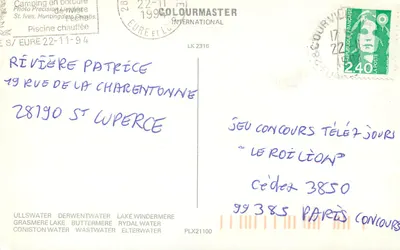 Camping en bordure
de rivière
Piscine chauffée
S/ EURE 22-11-94
Photo Precision Limited
St. Ives, Huntingdon
22-11
199
EURE ET L
COLOURMASTER
INTERNATIONAL
COURVI
22
2,40
LX 2310
RIVIÈRE PATRICE
19 RUE DE LA CHARENTONNE
28190 ST LUPERCE
JEU CONCOURS TÉLÉ 7 JOURS
"LE ROI LION"
Cédex 3850
99385 PARIS CONCOURS
ULLSWATER DERWENTWATER LAKE WINDERMERE
GRASMERE LAKE BUTTERMERE RYDAL WATER
CONISTON WATER WASTWATER ELTERWATER
PLX21100